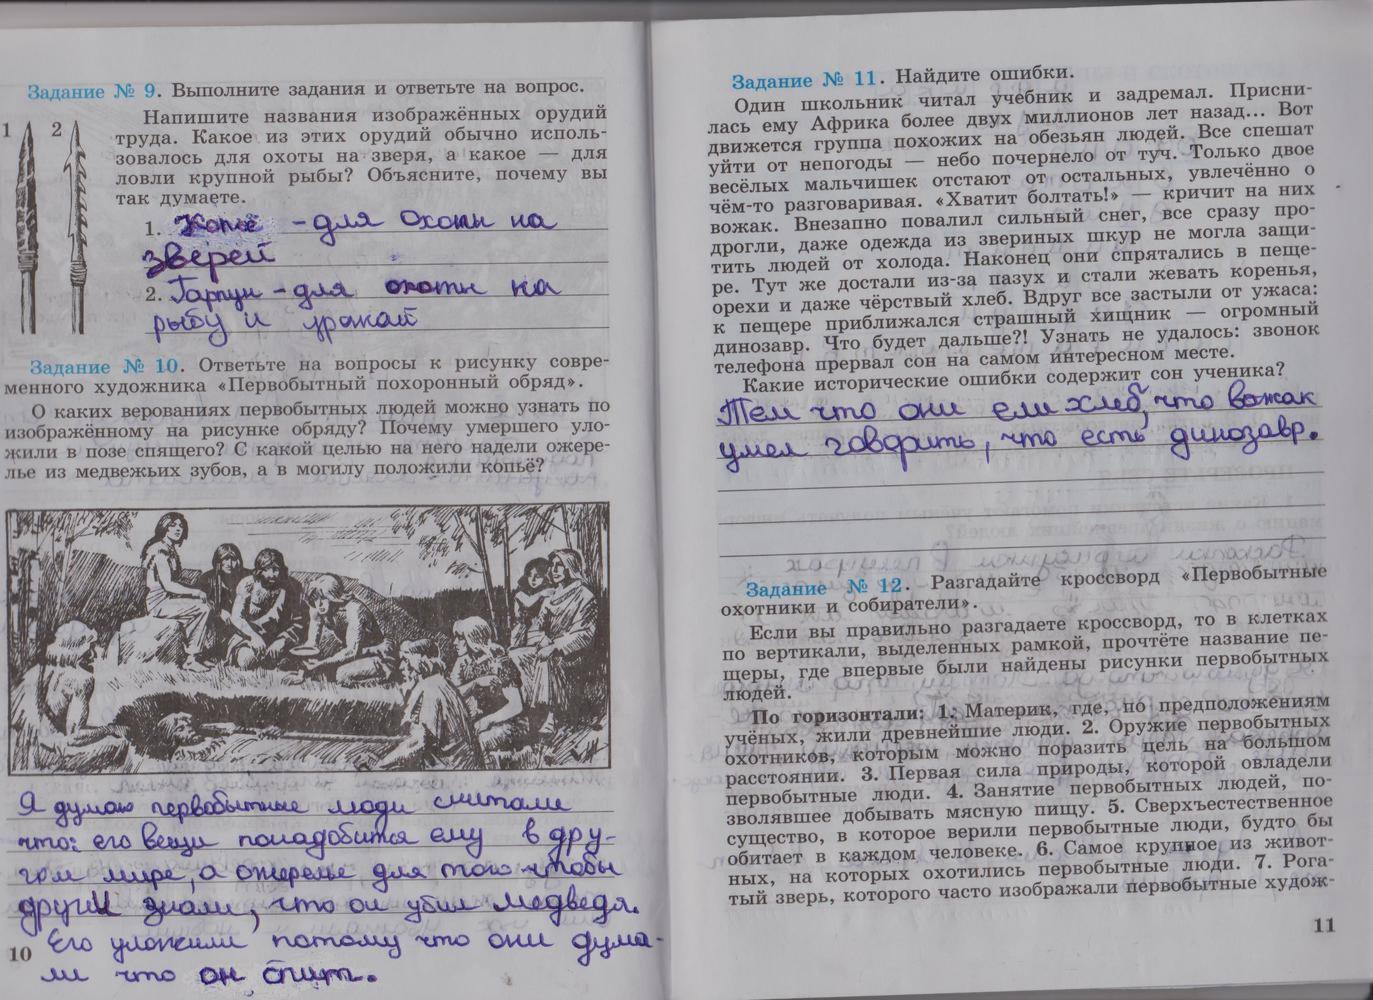 Задание № 9. Выполните задания и ответьте на вопрос.
1 2
Напишите названия изображённых орудий
труда. Какое из этих орудий обычно исполь-
зовалось для охоты на зверя, а какое — для
ловли крупной рыбы? Объясните, почему вы
так думаете.
1. Копьё - для охоты на
зверей
2. Гарпун - для охоты на
рыбу и
Задание № 10. Ответьте на вопросы к рисунку совре-
менного художника «Первобытный похоронный обряд».
О каких верованиях первобытных людей можно узнать по
изображённому на рисунке обряду? Почему умершего уло-
жили в позе спящего? С какой целью на него надели ожере-
лье из медвежьих зубов, а в могилу положили копьё?
Я думаю первобытные люди считали
что: его вещи понадобится ему в дру-
гом мире, а ожерелье для того чтобы
другии знали, что он убил медведя.
Его уложили потому что они дума-
ли что он спит.
10
Задание № 11. Найдите ошибки.
Один школьник читал учебник и задремал. Присни-
лась ему Африка более двух миллионов лет назад... Вот
движется группа похожих на обезьян людей. Все спешат
уйти от непогоды — небо почернело от туч. Только двое
весёлых мальчишек отстают от остальных, увлечённо о
чём-то разговаривая. «Хватит болтать!» — кричит на них
вожак. Внезапно повалил сильный снег, все сразу про-
дрогли, даже одежда из звериных шкур не могла защи-
тить людей от холода. Наконец они спрятались в пеще-
ре. Тут же достали из-за пазух и стали жевать коренья,
орехи и даже чёрствый хлеб. Вдруг все застыли от ужаса:
к пещере приближался страшный хищник — огромный
динозавр. Что будет дальше?! Узнать не удалось: звонок
телефона прервал сон на самом интересном месте.
Какие исторические ошибки содержит сон ученика?
Тем что они ели хлеб, что вожак
умел говорить, что есть динозавр.
Задание № 12. Разгадайте кроссворд «Первобытные
охотники и собиратели».
Если вы правильно разгадаете кроссворд, то в клетках
по вертикали, выделенных рамкой, прочтёте название пе-
щеры, где впервые были найдены рисунки первобытных
людей.
По горизонтали: 1. Материк, где, по предположениям
учёных, жили древнейшие люди. 2. Оружие первобытных
охотников, которым можно поразить цель на большом
расстоянии. 3. Первая сила природы, которой овладели
первобытные люди. 4. Занятие первобытных людей, по-
зволявшее добывать мясную пищу. 5. Сверхъестественное
существо, в которое верили первобытные люди, будто бы
обитает в каждом человеке. 6. Самое крупное из живот-
ных, на которых охотились первобытные люди. 7. Рога-
тый зверь, которого часто изображали первобытные худож-
11